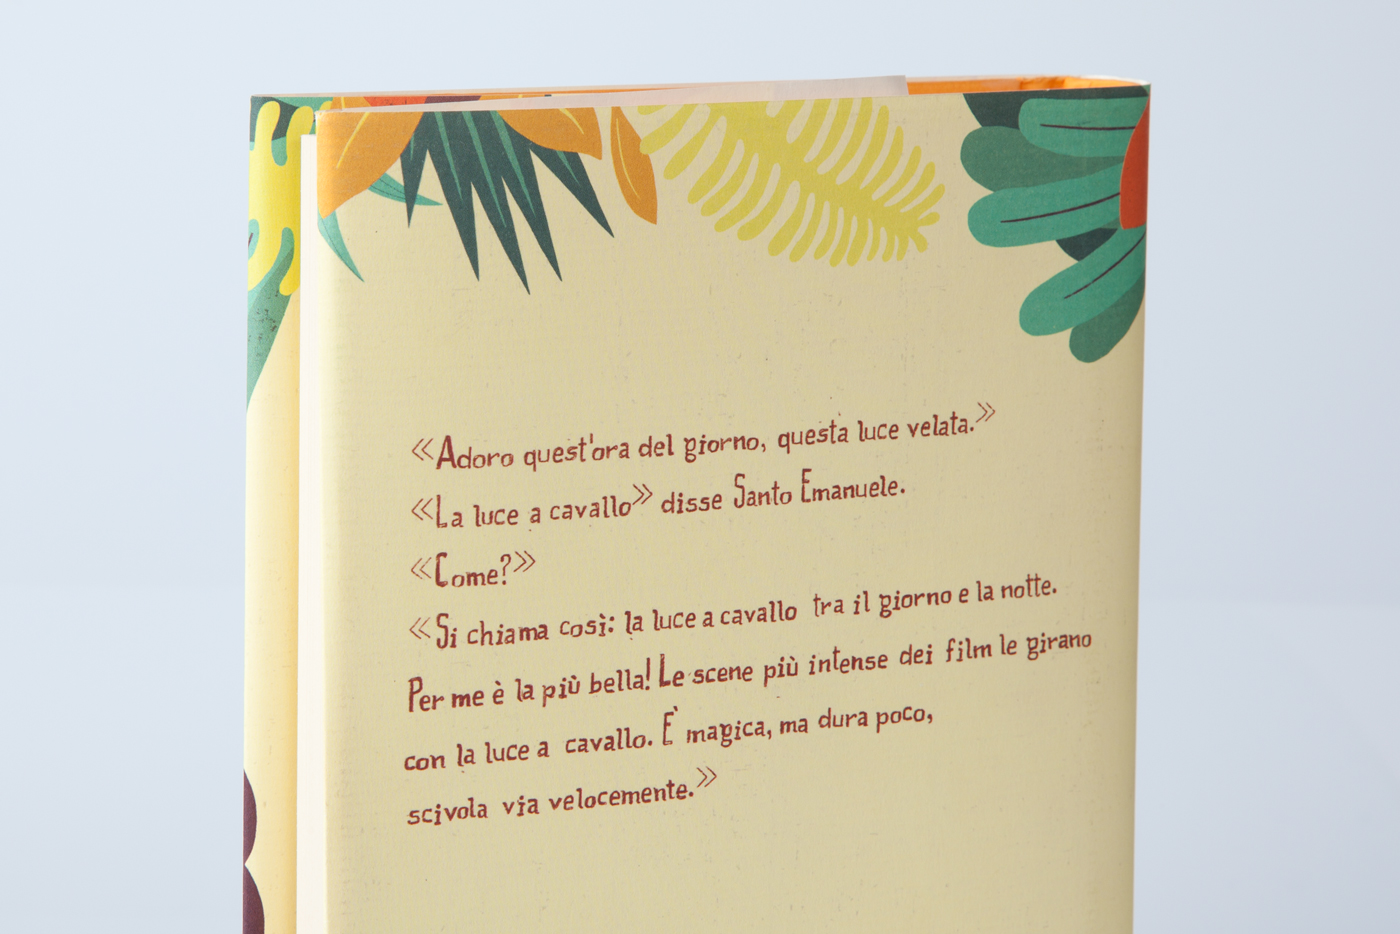 «Adoro quest'ora del giorno, questa luce velata.»
«La luce a cavallo» disse Santo Emanuele.
«Come?»
«Si chiama così: la luce a cavallo tra il giorno e la notte.
Per me è la più bella! Le scene più intense dei film le girano
con la luce a cavallo. E' magica, ma dura poco,
scivola via velocemente.»